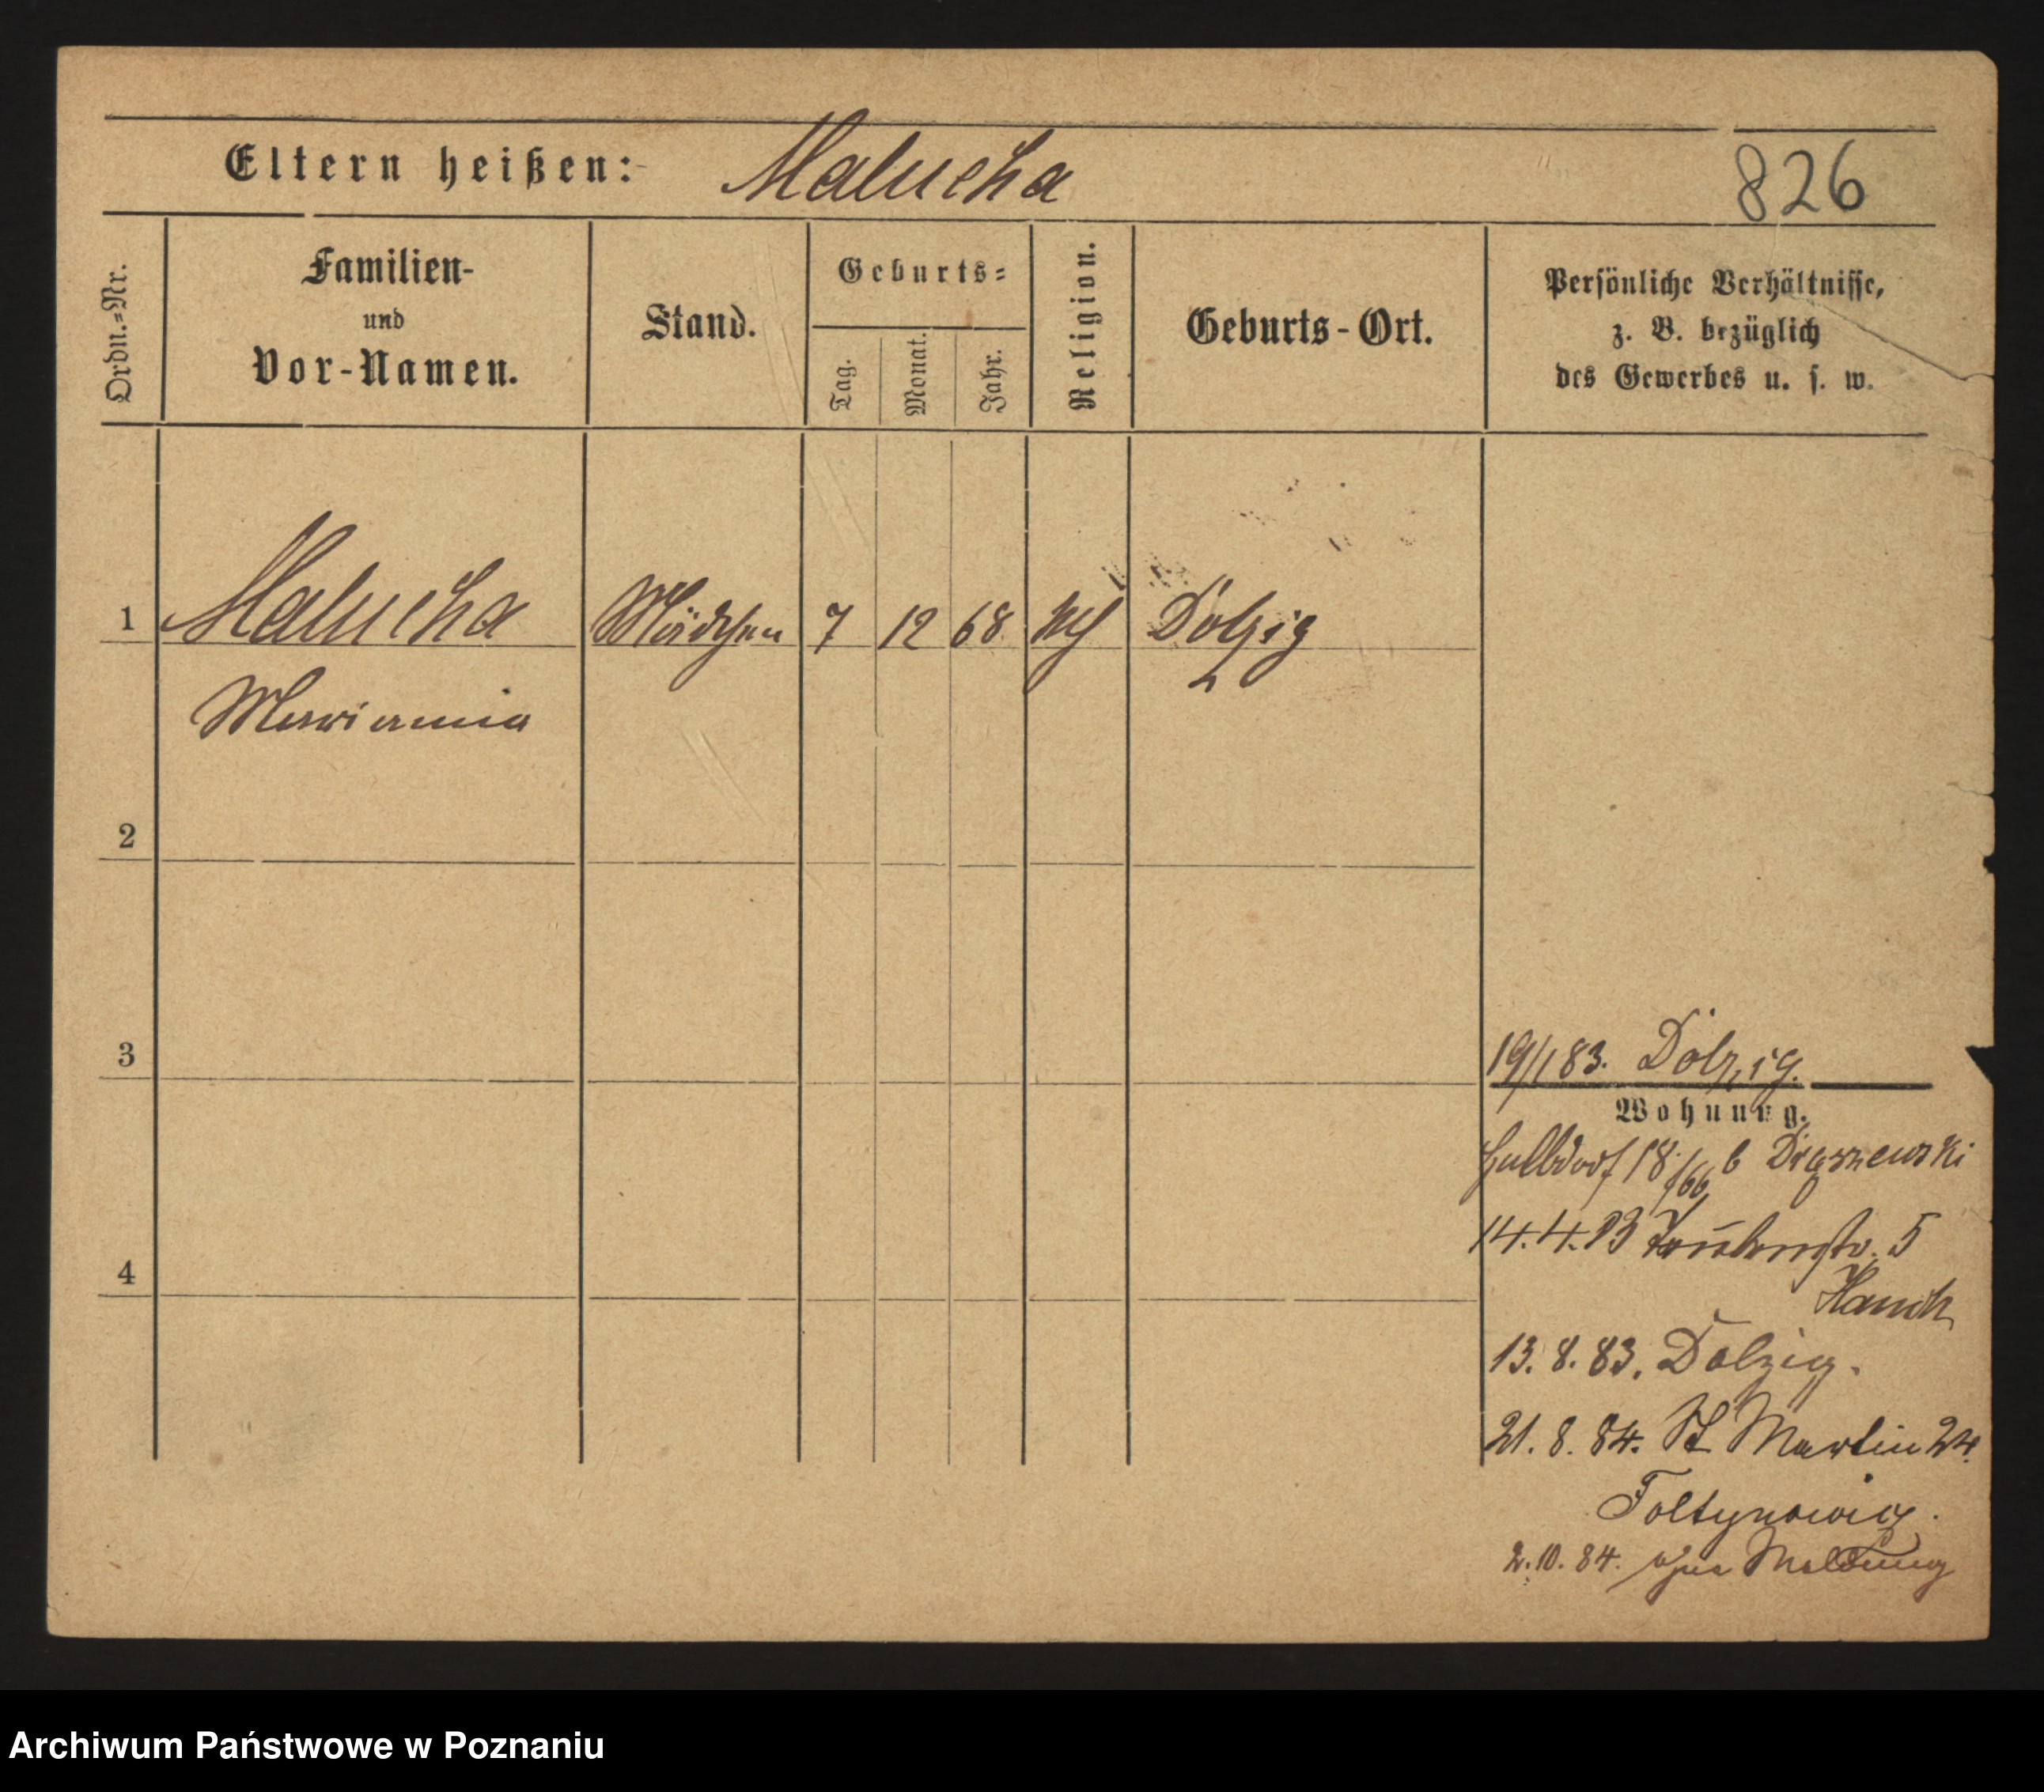 Eltern heißen: Malucha 826
Ordn.=Nr. Familien- und Vor-Namen. Stand. Geburts= Tag. Monat. Jahr. Religion. Geburts-Ort. Persönliche Verhältnisse, z. B. bezüglich des Gewerbes u. s. w.
1 Malucha Mädchen 7 12 68 kth Dolzig
Marianna
2
3
19/1 83. Dolzig.
Wohnung.
Halbdorf 18 b
14.4.83 5
4
13. 8. 83. Dolzig.
21. 8. 84. St Martin 24.
Foltynowicz.
2. 10. 84. ohne Meldung
Archiwum Państwowe w Poznaniu